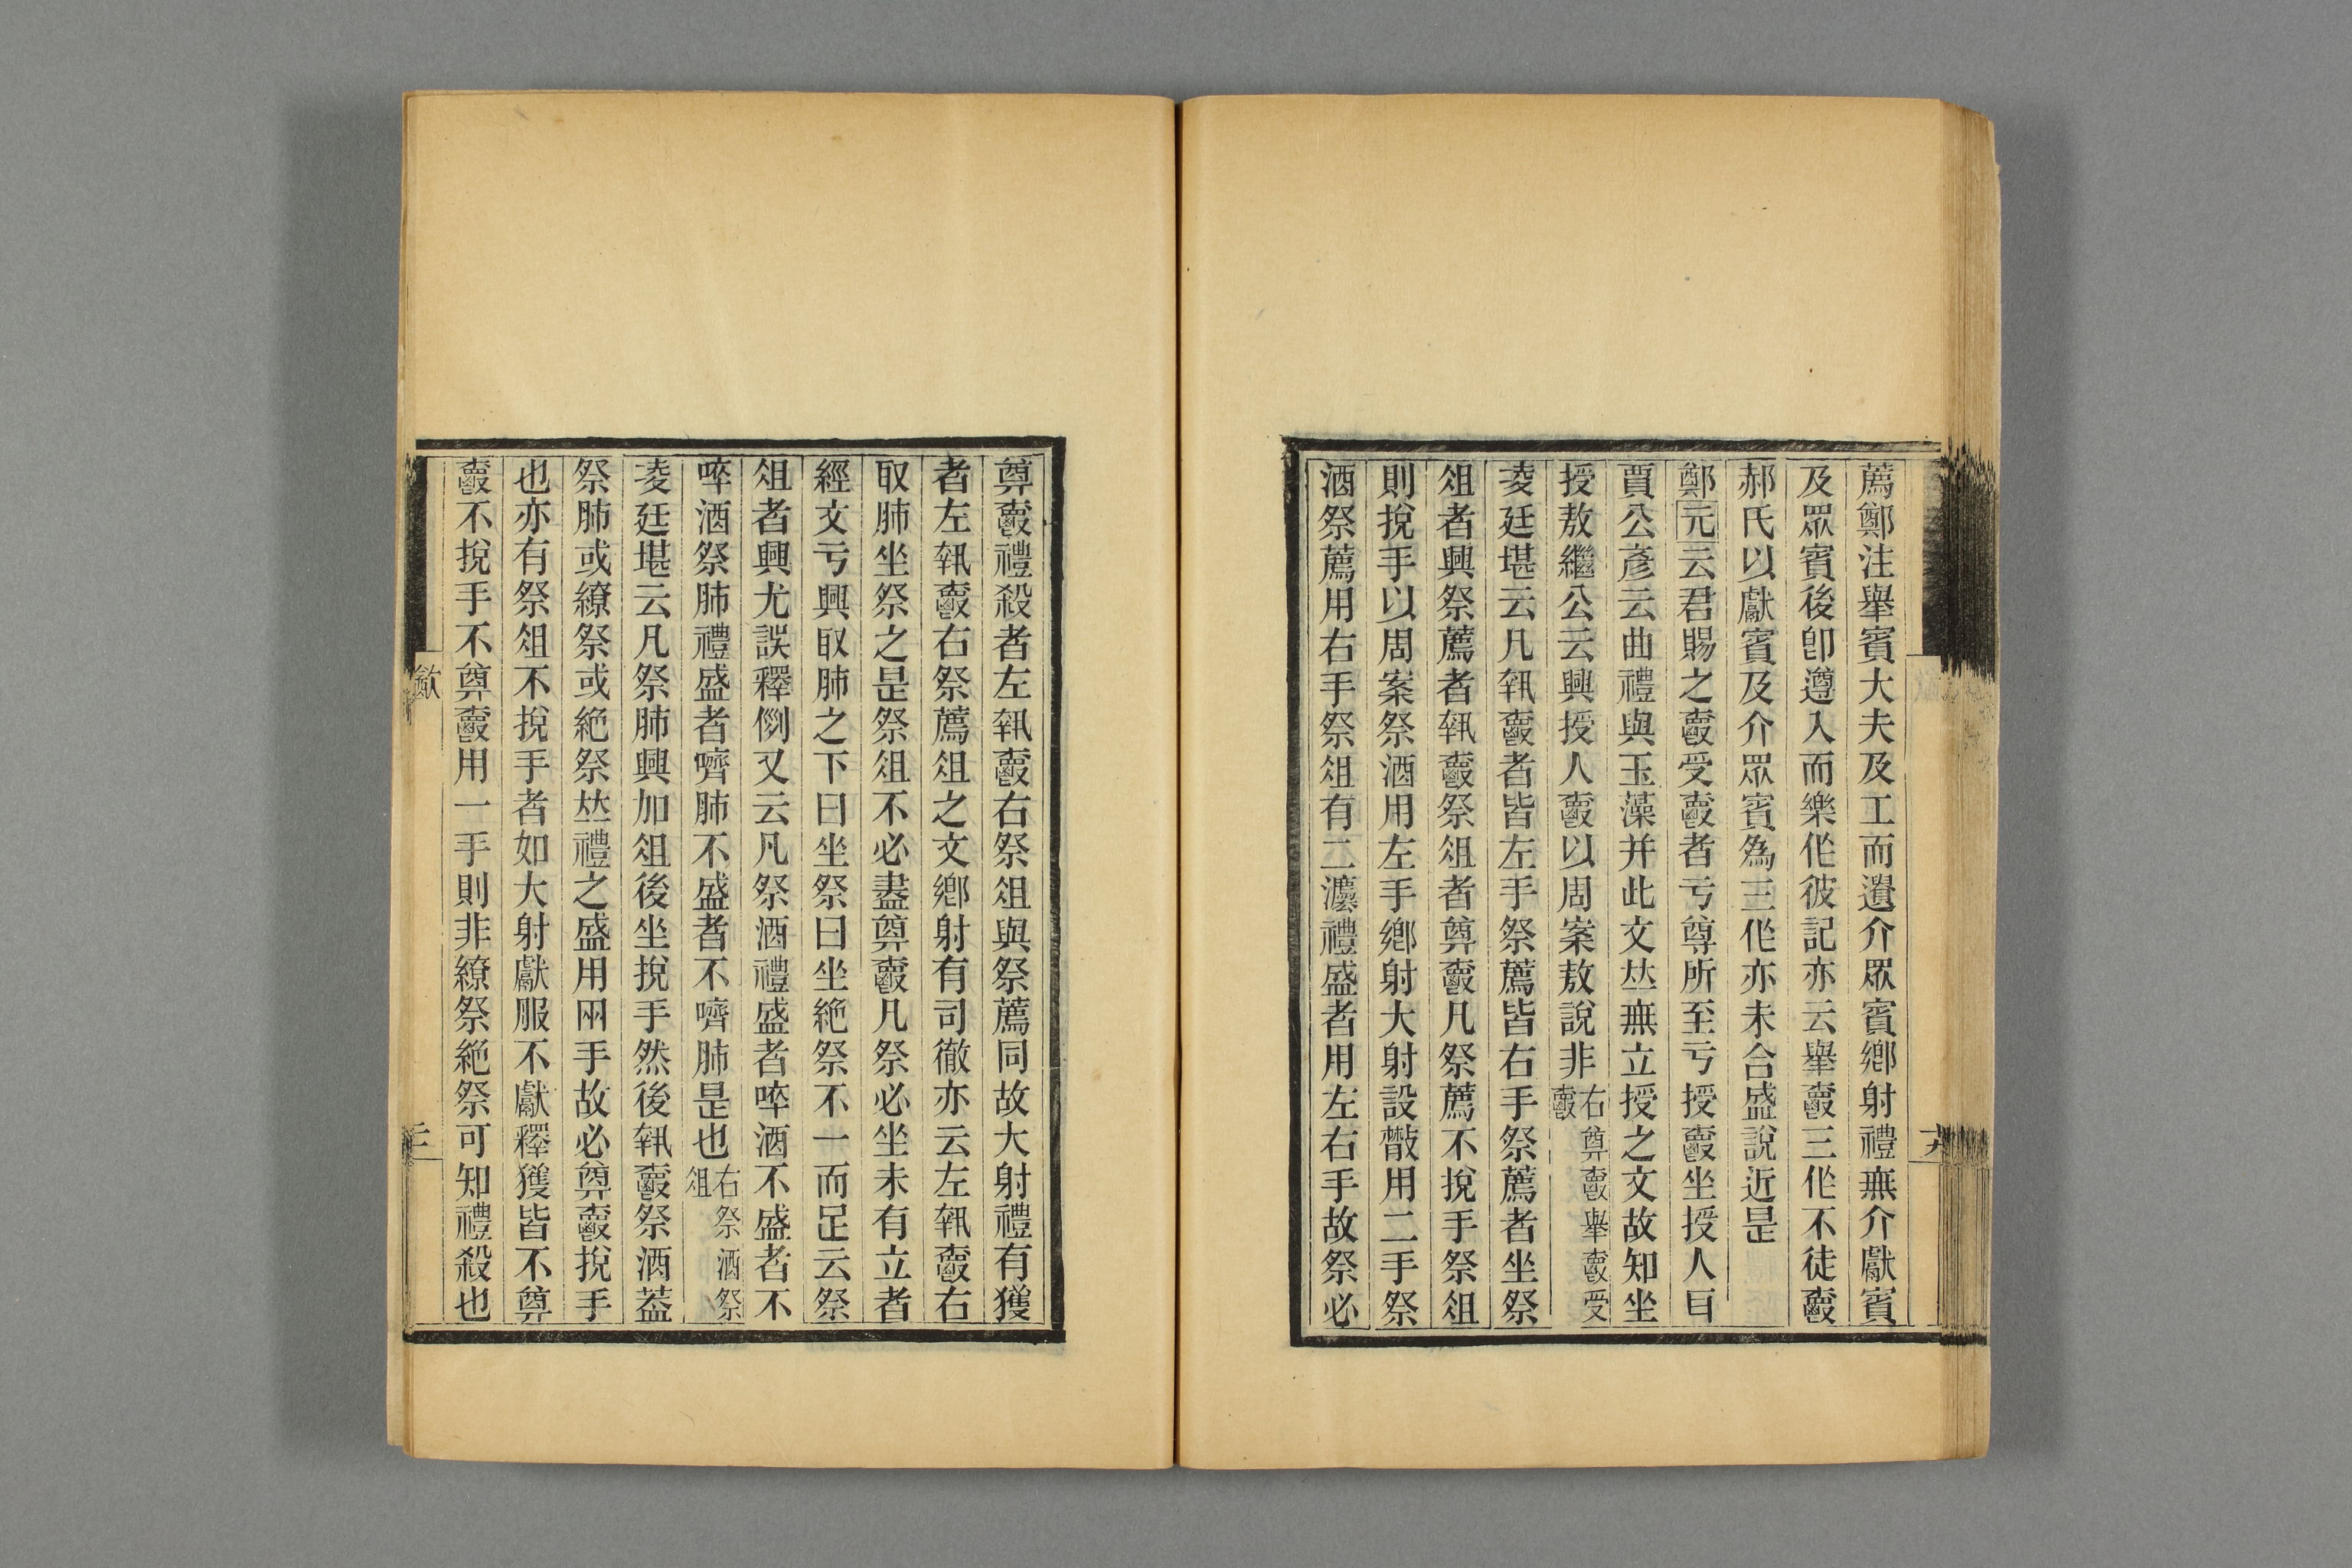 薦鄭注舉賓大夫及工而遺介眾賓鄉射禮無介獻賓
及眾賓後卽遵入而樂作彼記亦云舉爵三作不徒爵
郝氏以獻賓及介眾賓爲三作亦未合盛說近是
鄭元云君賜之爵受爵者亏尊所至亏授爵坐授人㠯
賈公彥云曲禮與玉藻并此文竝無立授之文故知坐
授敖繼公云興授人爵以周案敖說非右奠爵舉爵受爵
夌廷堪云凡執爵者皆左手祭薦皆右手祭薦者坐祭
俎者興祭薦者執爵祭俎者奠爵凡祭薦不挩手祭俎
則挩手以周案祭酒用左手鄉射大射設㪚用二手祭
酒祭薦用右手祭俎有二灋禮盛者用左右手故祭必
奠爵禮殺者左執爵右祭俎與祭薦同故大射禮有獲
者左執爵右祭薦俎之文鄉射有司徹亦云左執爵右
取肺坐祭之是祭俎不必盡奠爵凡祭必坐未有立者
經文亏興取肺之下曰坐祭曰坐絕祭不一而足云祭
俎者興尤誤釋例又云凡祭酒禮盛者啐酒不盛者不
啐酒祭肺禮盛者嚌肺不盛者不嚌肺是也右祭酒祭俎
夌廷堪云凡祭肺興加俎後坐挩手然後執爵祭酒葢
祭肺或繚祭或絕祭竝禮之盛用兩手故必奠爵挩手
也亦有祭俎不挩手者如大射獻服不獻釋獲皆不奠
爵不挩手不奠爵用一手則非繚祭絕祭可知禮殺也